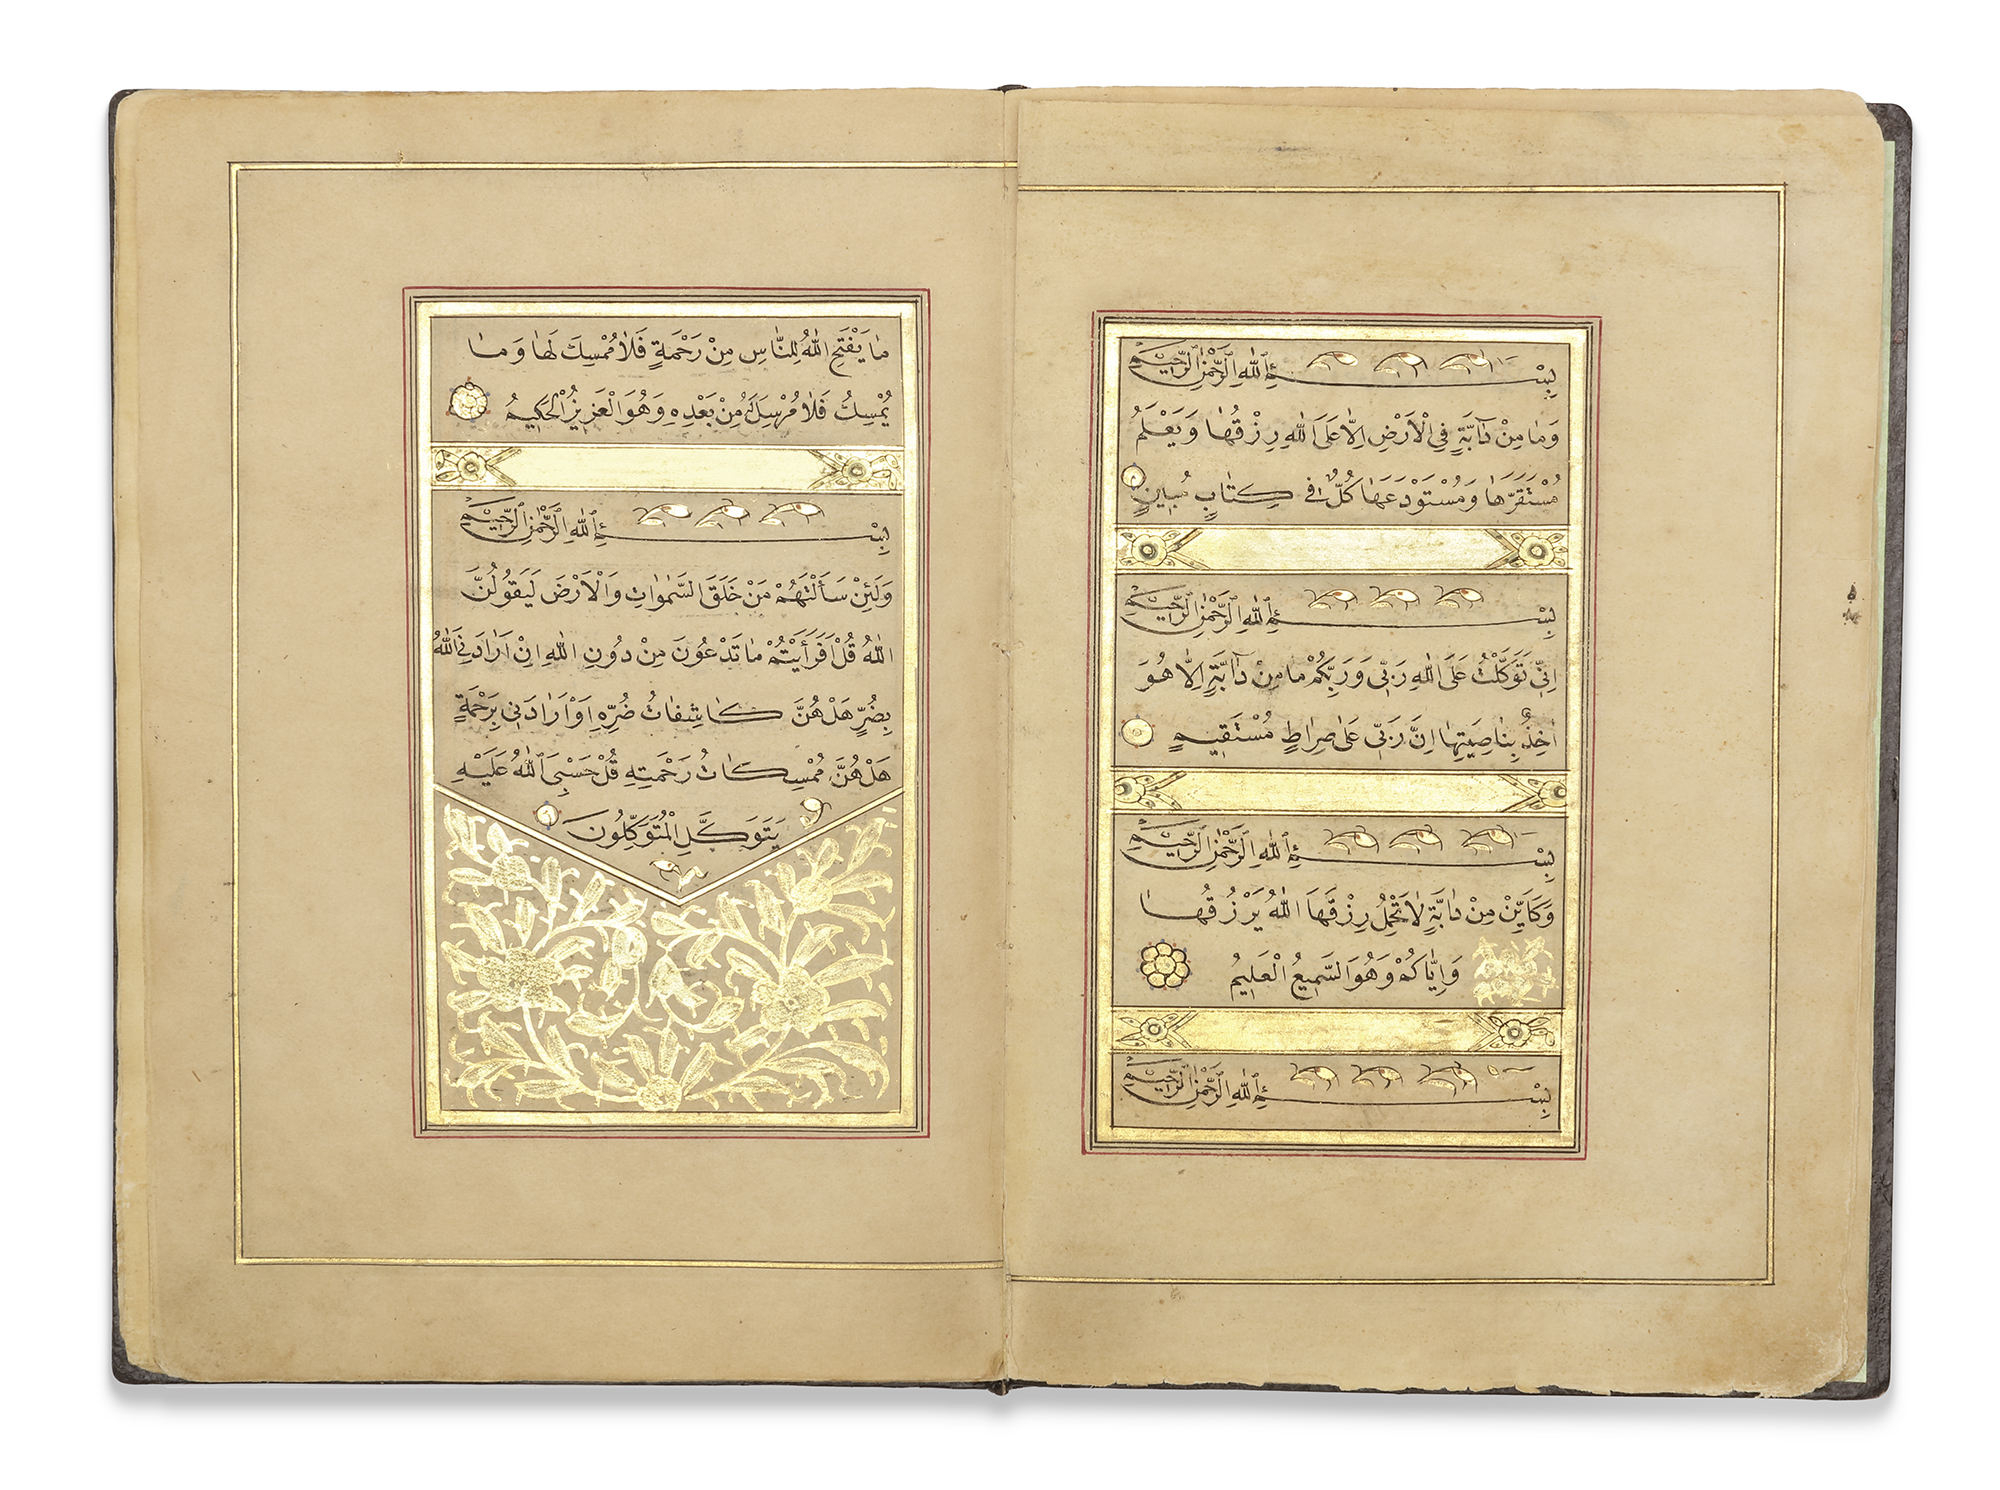 بِسْمِ اللّٰهِ الرَّحْمٰنِ الرَّحِيمِ
وَمَا مِنْ دَآبَّةٍ فِي الْاَرْضِ اِلَّا عَلَى اللّٰهِ رِزْقُهَا وَيَعْلَمُ
مُسْتَقَرَّهَا وَمُسْتَوْدَعَهَا كُلٌّ فِي كِتَابٍ مُبِينٍ
بِسْمِ اللّٰهِ الرَّحْمٰنِ الرَّحِيمِ
اِنِّي تَوَكَّلْتُ عَلَى اللّٰهِ رَبِّي وَرَبِّكُمْ مَا مِنْ دَآبَّةٍ اِلَّا هُوَ
اٰخِذٌ بِنَاصِيَتِهَا اِنَّ رَبِّي عَلٰى صِرَاطٍ مُسْتَقِيمٍ
بِسْمِ اللّٰهِ الرَّحْمٰنِ الرَّحِيمِ
وَكَاَيِّنْ مِنْ دَابَّةٍ لَا تَحْمِلُ رِزْقَهَا اللّٰهُ يَرْزُقُهَا
وَاِيَّاكُمْ وَهُوَ السَّمِيعُ الْعَلِيمُ
بِسْمِ اللّٰهِ الرَّحْمٰنِ الرَّحِيمِ
مَا يَفْتَحِ اللّٰهُ لِلنَّاسِ مِنْ رَحْمَةٍ فَلَا مُمْسِكَ لَهَا وَمَا
يُمْسِكْ فَلَا مُرْسِلَ لَهُ مِنْ بَعْدِهِ وَهُوَ الْعَزِيزُ الْحَكِيمُ
بِسْمِ اللّٰهِ الرَّحْمٰنِ الرَّحِيمِ
وَلَئِنْ سَاَلْتَهُمْ مَنْ خَلَقَ السَّمٰوَاتِ وَالْاَرْضَ لَيَقُولُنَّ
اللّٰهُ قُلْ اَفَرَاَيْتُمْ مَا تَدْعُونَ مِنْ دُونِ اللّٰهِ اِنْ اَرَادَنِيَ اللّٰهُ
بِضُرٍّ هَلْ هُنَّ كَاشِفَاتُ ضُرِّهِ اَوْ اَرَادَنِي بِرَحْمَةٍ
هَلْ هُنَّ مُمْسِكَاتُ رَحْمَتِهِ قُلْ حَسْبِيَ اللّٰهُ عَلَيْهِ
يَتَوَكَّلُ الْمُتَوَكِّلُونَ